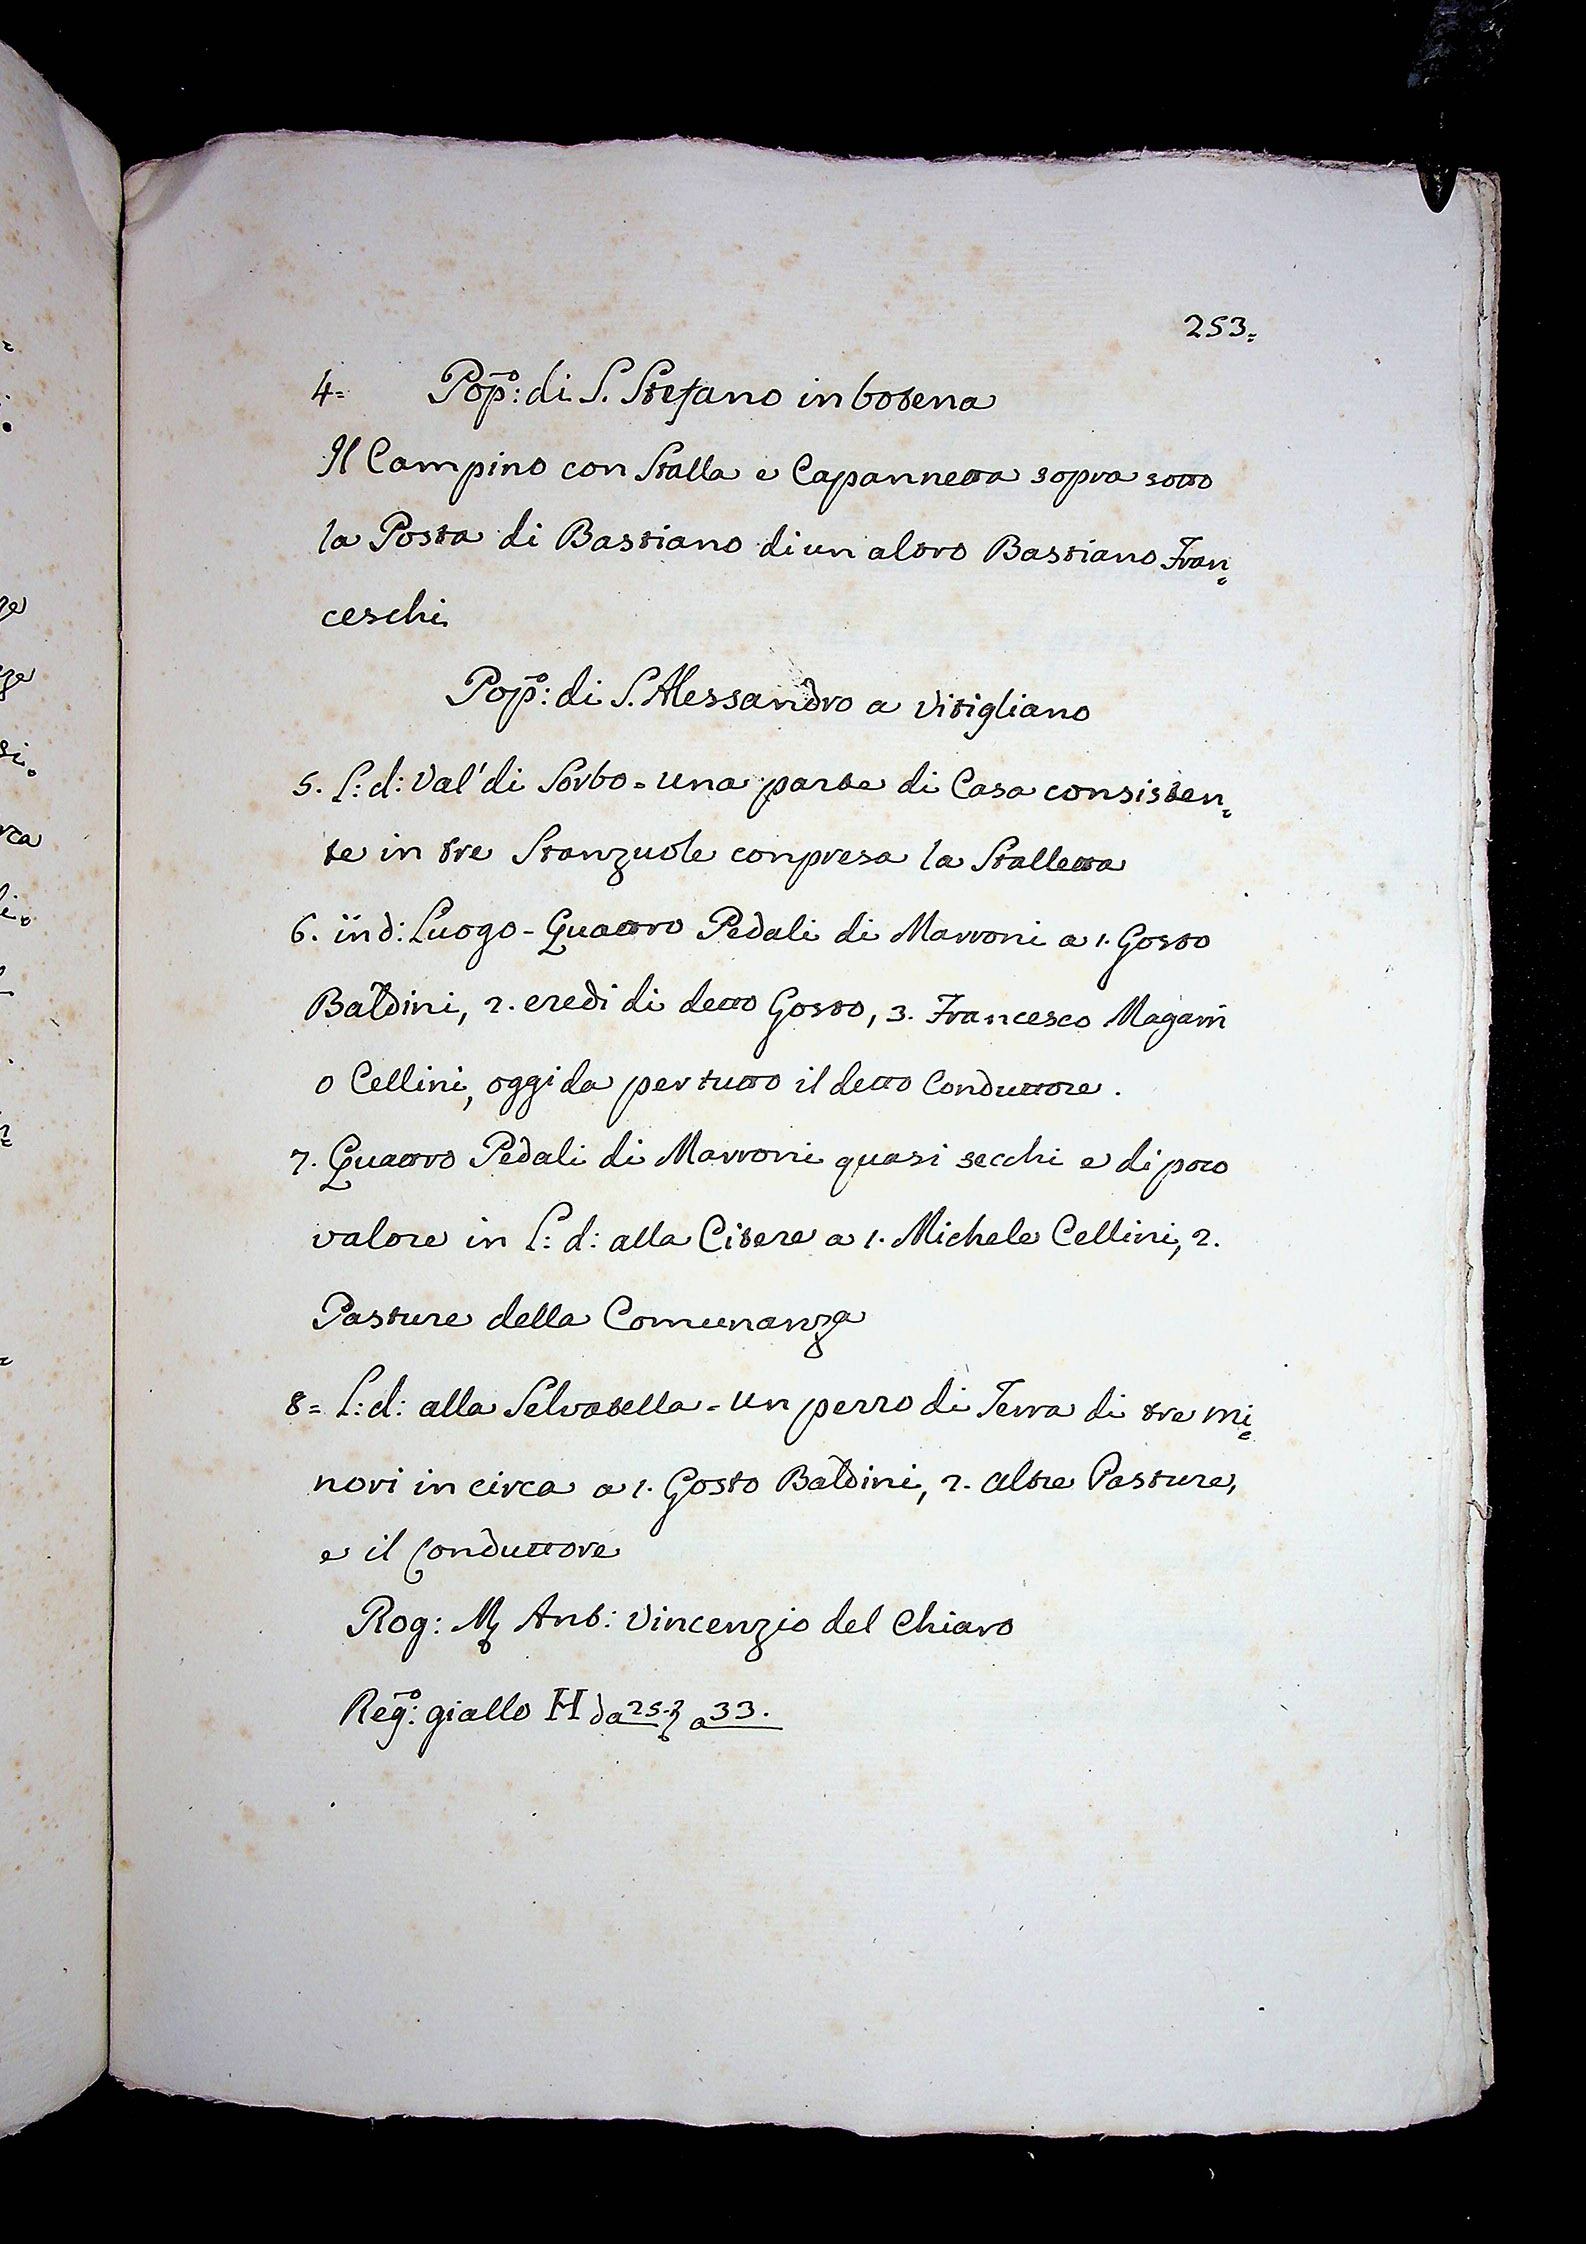 253=
4= Pop̄o: di S. Stefano in botena
Il Campino con Stalla e Capannetta sopra sotto
la Posta di Bastiano di un altro Bastiano Fran=
ceschi
Pop̄o: di S. Alessandro a Vitigliano
5. L: d: Val' di Sorbo = una parte di Casa consisten=
te in tre Stanzuole conpresa la Stalletta
6. in d: Luogo - Quattro Pedali di Marroni a 1. Gosto
Baldini, 2. eredi di detto Gosto, 3. Francesco
o Cellini, oggi da per tutto il detto Conduttore.
7. Quattro Pedali di Marroni quasi secchi e di poco
valore in L: d: alla Citere a 1. Michele Cellini, 2.
Pasture della Comunanza
8= L: d: alla Selvatella = un pezzo di Terra di tre mi=
nori in circa a 1. Gosto Baldini, 2. altre Pasture,
e il Conduttore
Rog: Ant: Vincenzio del Chiaro
Reḡo: giallo H da 25. a 33.